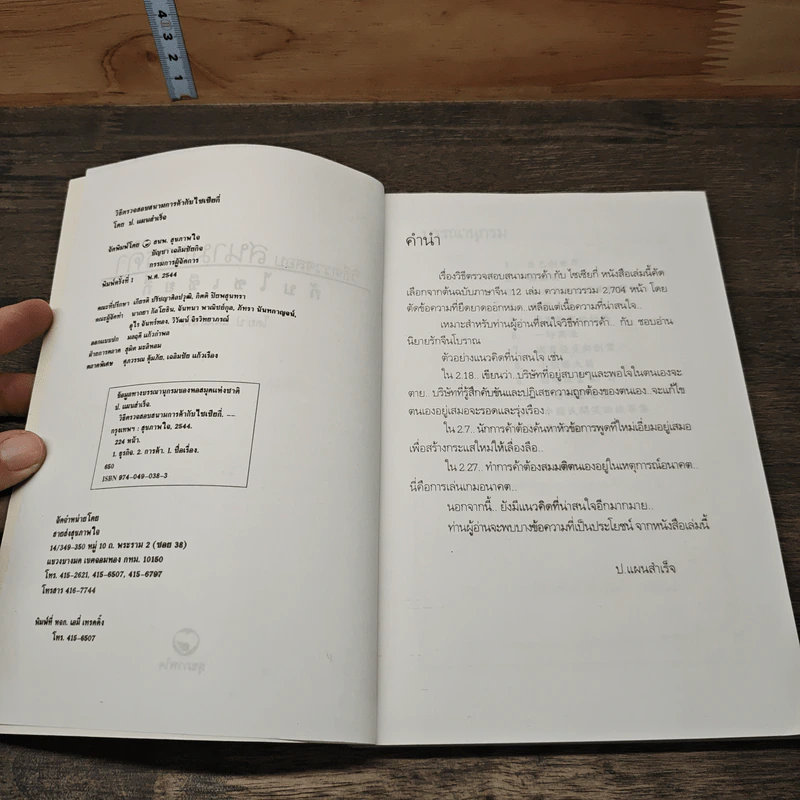 วิธีตรวจสอบสนามการค้ากับไซเซียกี่
โดย ป. แผนสำเร็จ
จัดพิมพ์โดย ธนพ. สุขภาพใจ
บัญชา เฉลิมชัยกิจ
กรรมการผู้จัดการ
พิมพ์ครั้งที่ 1 พ.ศ. 2544
คณะที่ปรึกษา เกียรติ ปรัชญาศิลปวุฒิ, ภิคติ ปิยพสุนทรา
คณะผู้จัดทำ นาถยา กัลโยธิน, จันทนา พาณิชย์กูล, ภัทรา นันทกาญจน์,
สุไร จันทร์ทอง, วิวัฒน์ จิรวิทยาภรณ์
ออกแบบปก มลฤดี แก้วกำพล
ฝ่ายการตลาด สุมิต มะลิหอม
ตลาดพิเศษ สุภวรรณ จุ้มภัย, เฉลิมชัย แก้วเรือง
ข้อมูลทางบรรณานุกรมของหอสมุดแห่งชาติ
ป. แผนสำเร็จ.
วิธีตรวจสอบสนามการค้ากับไซเซียกี่. --
กรุงเทพฯ : สุขภาพใจ, 2544.
224 หน้า.
1. ธุรกิจ. 2. การค้า. I. ชื่อเรื่อง.
650
ISBN 974-049-038-3
จัดจำหน่ายโดย
สายส่งสุขภาพใจ
14/349-350 หมู่ 10 ถ. พระราม 2 (ซอย 38)
แขวงบางมด เขตจอมทอง กทม. 10150
โทร. 415-2621, 415-6507, 415-6797
โทรสาร 416-7744
พิมพ์ที่ หจก. เอมี่ เทรดดิ้ง
โทร. 415-6507
คำนำ
เรื่องวิธีตรวจสอบสนามการค้า กับ ไซเซียกี่ หนังสือเล่มนี้คัด
เลือกจากต้นฉบับภาษาจีน 12 เล่ม ความยาวรวม 2,704 หน้า โดย
ตัดข้อความที่ยืดยาดออกหมด..เหลือแต่เนื้อความที่น่าสนใจ..
เหมาะสำหรับท่านผู้อ่านที่สนใจวิธีทำการค้า... กับ ชอบอ่าน
นิยายรักจีนโบราณ
ตัวอย่างแนวคิดที่น่าสนใจ เช่น
ใน 2.18.. เขียนว่า..บริษัทที่อยู่สบายๆและพอใจในตนเองจะ
ตาย.. บริษัทที่รู้สึกคับขันและปฏิเสธความถูกต้องของตนเอง.. จะแก้ไข
ตนเองอยู่เสมอจะรอดและรุ่งเรือง
ใน 2.7.. นักการค้าต้องค้นหาหัวข้อการพูดที่ใหม่เอี่ยมอยู่เสมอ
เพื่อสร้างกระแสใหม่ให้เลื่องลือ..
ใน 2.27. ทำการค้าต้องสมมติตนเองอยู่ในเหตุการณ์อนาคต..
นี่คือการเล่นเกมอนาคต..
นอกจากนี้.. ยังมีแนวคิดที่น่าสนใจอีกมากมาย...
ท่านผู้อ่านจะพบบางข้อความที่เป็นประโยชน์ จากหนังสือเล่มนี้
ป.แผนสำเร็จ
4 3 2 1